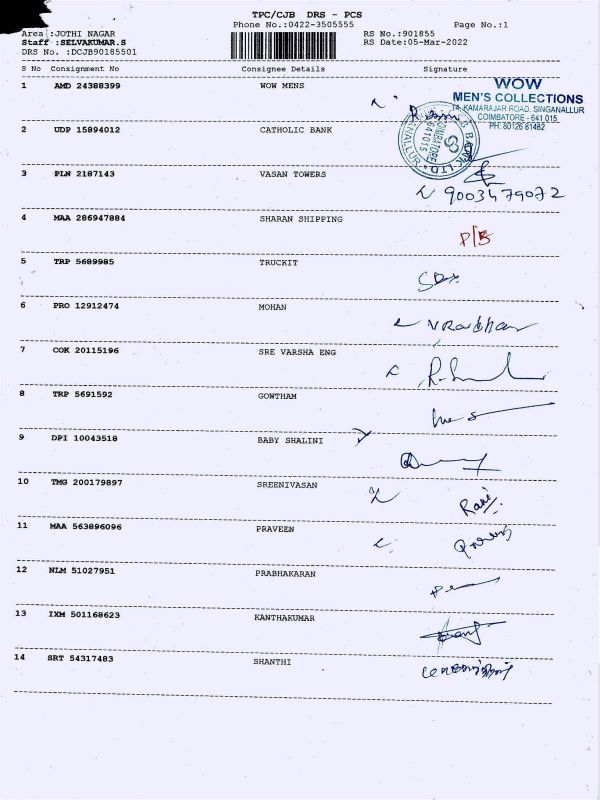 TPC/CJB DRS - PCS
Phone No.:0422-3505555 Page No.:1
Area :JOTHI NAGAR RS No.:901855
Staff :SELVAKUMAR.S RS Date:05-Mar-2022
DRS No. :DCJB90185501
S No Consignment No Consignee Details Signature
1 AMD 24388399 WOW MENS
WOW
MEN'S COLLECTIONS
74, KAMARAJAR ROAD, SINGANALLUR
COIMBATORE - 641 015.
PH: 80126 61482
2 UDP 15894012 CATHOLIC BANK
COIMBATORE
641015
3 PLN 2187143 VASAN TOWERS
9003479072
4 MAA 286947884 SHARAN SHIPPING
P/B
5 TRP 5689985 TRUCKIT
6 PRO 12912474 MOHAN
7 COK 20115196 SRE VARSHA ENG
8 TRP 5691592 GOWTHAM
9 DPI 10043518 BABY SHALINI
10 TMG 200179897 SREENIVASAN
11 MAA 563896096 PRAVEEN
12 NLM 51027951 PRABHAKARAN
13 IXM 501168623 KANTHAKUMAR
14 SRT 54317483 SHANTHI